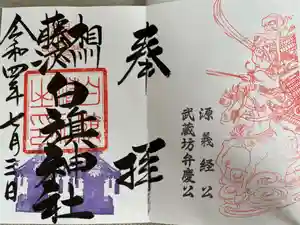 奉拝
相州藤沢
白旗神社
令和四年七月三日
源義経公
武蔵坊弁慶公